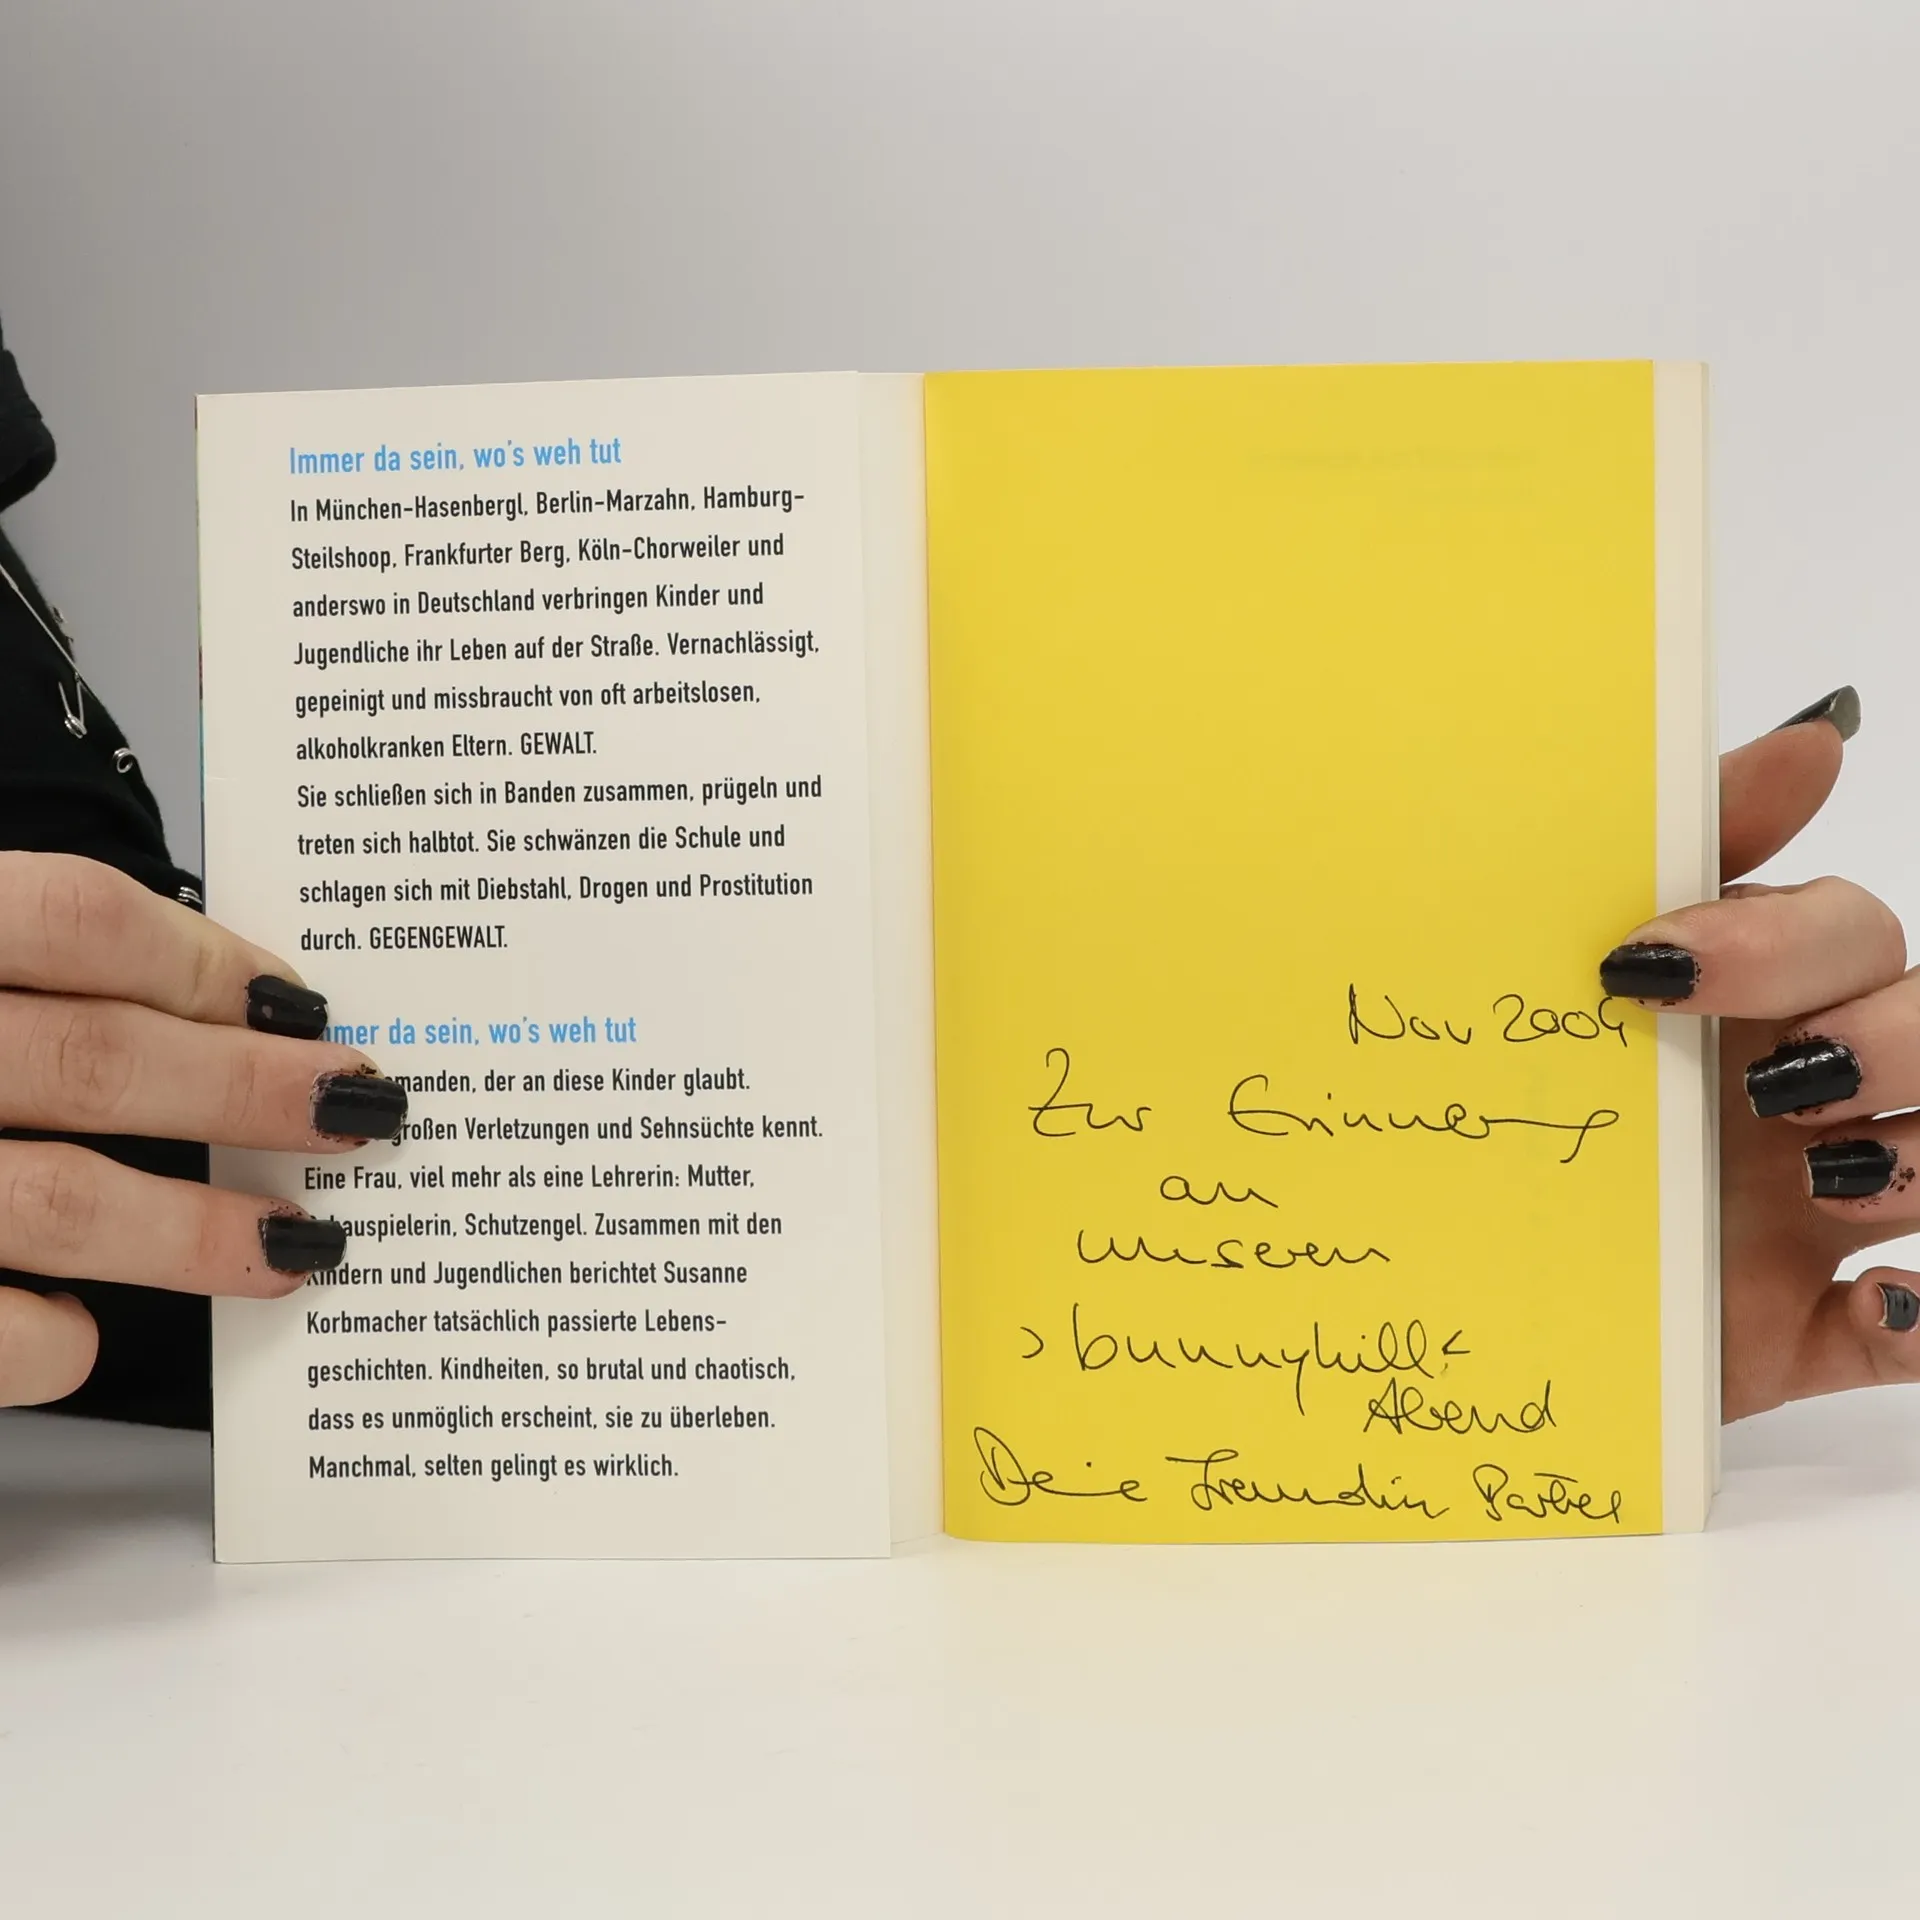 Immer da sein, wo's weh tut
In München-Hasenbergl, Berlin-Marzahn, Hamburg-
Steilshoop, Frankfurter Berg, Köln-Chorweiler und
anderswo in Deutschland verbringen Kinder und
Jugendliche ihr Leben auf der Straße. Vernachlässigt,
gepeinigt und missbraucht von oft arbeitslosen,
alkoholkranken Eltern. GEWALT.
Sie schließen sich in Banden zusammen, prügeln und
treten sich halbtot. Sie schwänzen die Schule und
schlagen sich mit Diebstahl, Drogen und Prostitution
durch. GEGENGEWALT.
mmer da sein, wo's weh tut
manden, der an diese Kinder glaubt.
großen Verletzungen und Sehnsüchte kennt.
Eine Frau, viel mehr als eine Lehrerin: Mutter,
auspielerin, Schutzengel. Zusammen mit den
Kindern und Jugendlichen berichtet Susanne
Korbmacher tatsächlich passierte Lebens-
geschichten. Kindheiten, so brutal und chaotisch,
dass es unmöglich erscheint, sie zu überleben.
Manchmal, selten gelingt es wirklich.
Nov 2004
Zur Erinnerung
an
unseren
>bunnyhill<
Abend
Deine Freundin